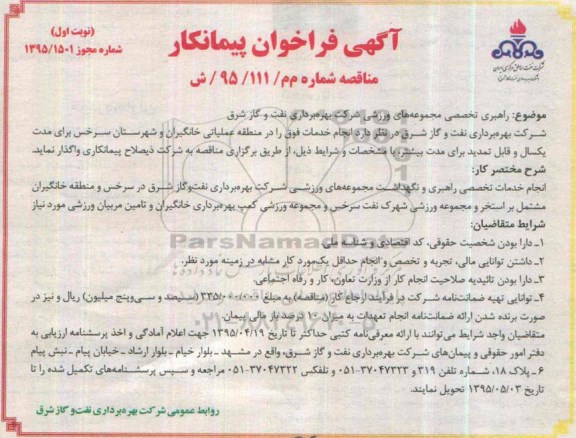 (نوبت اول)
شماره مجوز ۱۳۹۵/۱۵۰۱
آگهی فراخوان پیمانکار
مناقصه شماره م‌م/ ۱۱۱/ ۹۵/ ش
موضوع: راهبری تخصصی مجموعه‌های ورزشی شرکت بهره‌برداری نفت و گاز شرق
شرکت بهره‌برداری نفت و گاز شرق در نظر دارد انجام خدمات فوق را در منطقه عملیاتی خانگیران و شهرستان سرخس برای مدت
یکسال و قابل تمدید برای مدت بیشتر با مشخصات و شرایط ذیل، از طریق برگزاری مناقصه به شرکت ذیصلاح پیمانکاری واگذار نماید.
شرح مختصر کار:
انجام خدمات تخصصی راهبری و نگهداشت مجموعه‌های ورزشی شرکت بهره‌برداری نفت‌وگاز شرق در سرخس و منطقه خانگیران
مشتمل بر استخر و مجموعه ورزشی شهرک نفت سرخس و مجموعه ورزشی کمپ بهره‌برداری خانگیران و تامین مربیان ورزشی مورد نیاز
شرایط متقاضیان:
۱ـ دارا بودن شخصیت حقوقی، کد اقتصادی و شناسه ملی
۲ـ داشتن توانایی مالی، تجربه و تخصص و انجام حداقل یک‌مورد کار مشابه در زمینه مورد نظر.
۳ـ دارا بودن تائیدیه صلاحیت انجام کار از وزارت تعاون، کار و رفاه اجتماعی.
۴ـ توانایی تهیه ضمانت‌نامه شرکت در فرآیند ارجاع کار (مناقصه) به مبلغ (سیصد و سی‌وپنج میلیون) ریال و نیز در
صورت برنده شدن ارائه ضمانت‌نامه انجام تعهدات به میزان ۱۰ درصد بار مالی پیمان.
متقاضیان واجد شرایط می‌توانند با ارائه معرفی‌نامه کتبی حداکثر تا تاریخ ۱۳۹۵/۰۴/۱۹ جهت اعلام آمادگی و اخذ پرسشنامه ارزیابی به
دفتر امور حقوقی و پیمان‌های شرکت بهره‌برداری نفت و گاز شرق، واقع در مشهد ـ بلوار خیام ـ بلوار ارشاد ـ خیابان پیام ـ نبش پیام
۶ ـ پلاک ۱۸، شماره تلفن ۳۱۹ و ۳۷۰۴۷۳۲۳-۰۵۱ و تلفکس ۳۷۰۴۷۳۲۲-۰۵۱ مراجعه و سپس پرسشنامه‌های تکمیل شده را تا
تاریخ ۱۳۹۵/۰۵/۰۳ تحویل نمایند.
روابط عمومی شرکت بهره‌برداری نفت‌و گاز شرق
ParsNamadData